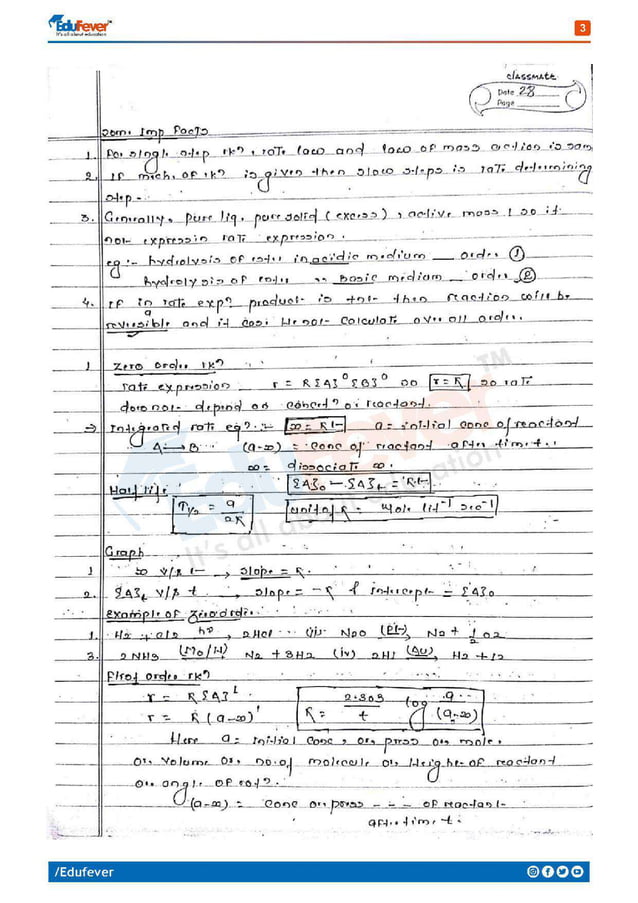 EduFever™
It's all about education
3
classmate
Date 28
Page
Some Imp Facts
1. For single step rkn, rate law and law of mass action is sam
2. If mech. of rkn is given then slow steps is rate determining
step.
3. Generally, pure liq, pure solid (excess), active mass 1 so it
not expression rate expression.
eg :- hydrolysis of ester in acidic medium __ order ①
hydrolysis of ester " Basic medium __ order ②
4. If in a rate expn product is then reaction will be
reversible and it cosi He not calculate over all order.
1 Zero order rkn
rate expression r = K[A]⁰[B]⁰ so r = K so rate
does not depend on concn of reactant.
⇒ Integrated rate eqn :- x = Kt a = initial conc of reactant
A → B (a-x) = conc of reactant after time t.
x = dissociate x.
Half life [A]₀ - [A]t = Kt
T½ = a/2K unit of K = mole lit⁻¹ sec⁻¹
Graph
1 x v/s t → slope = K.
2. [A]t v/s t → slope = -K & intercept = [A]₀
Example of Zero order
1. H2 + cl2 hν, 2Hcl (ii) N2O (Pt), N2 + ½ O2
3. 2 NH3 (Mo/W) N2 + 3H2 (iv) 2HI (Au), H2 + I2
First order rkn
r = K[A]¹
r = K(a-x)¹ K = 2.303/t log a/(a-x)
Here a = initial conc, or press or mole.
or, volume or, no. of molecule or Height of reactant
or angle of rotn.
(a-x) = conc or press - - - of reactant
after time t.
EduFever™
It's all about education
/Edufever